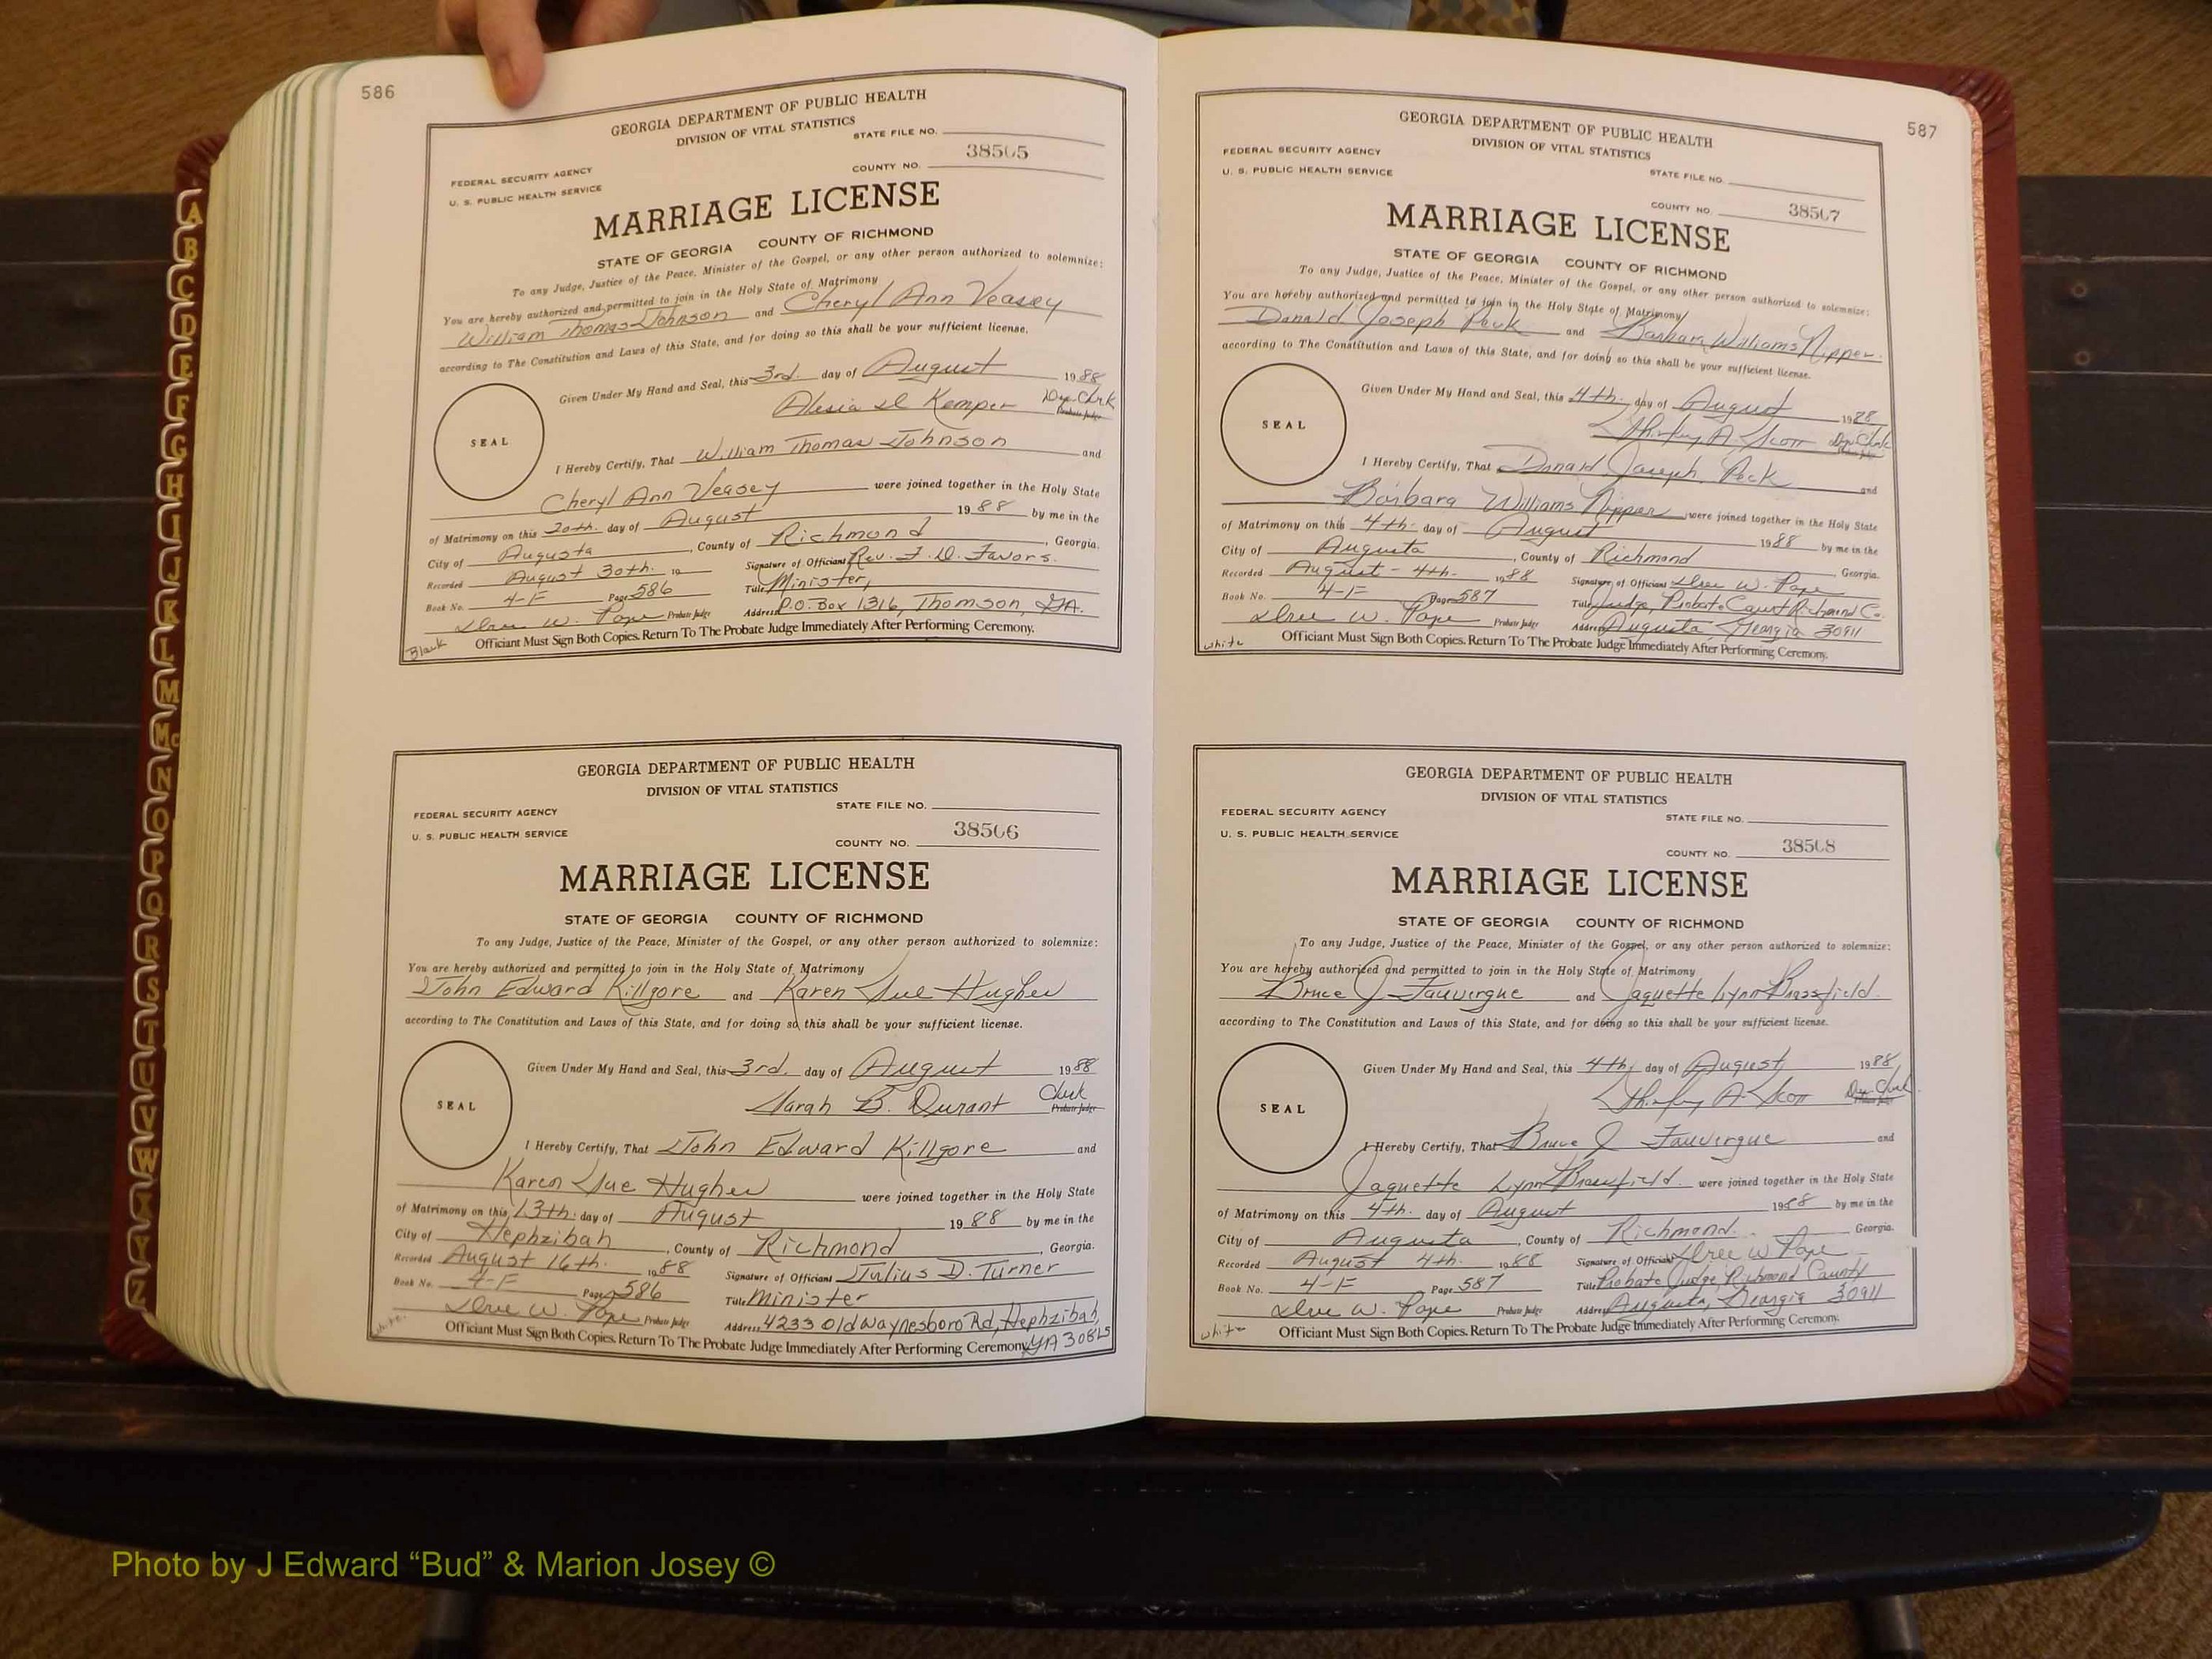 586
GEORGIA DEPARTMENT OF PUBLIC HEALTH
DIVISION OF VITAL STATISTICS
STATE FILE NO.
FEDERAL SECURITY AGENCY
38505
U. S. PUBLIC HEALTH SERVICE
COUNTY NO.
MARRIAGE LICENSE
STATE OF GEORGIA COUNTY OF RICHMOND
To any Judge, Justice of the Peace, Minister of the Gospel, or any other person authorized to solemnize:
You are hereby authorized and permitted to join in the Holy State of Matrimony
William Thomas Johnson and Cheryl Ann Veasey
according to The Constitution and Laws of this State, and for doing so this shall be your sufficient license.
Given Under My Hand and Seal, this 3rd. day of August 1988
Alesia D Kemper Dep. Clerk
Probate Judge
SEAL
I Hereby Certify, That William Thomas Johnson and
Cheryl Ann Veasey were joined together in the Holy State
of Matrimony on this 20th. day of August 1988 by me in the
City of Augusta, County of Richmond, Georgia.
Recorded August 30th. 19 Signature of Officiant Rev. F. D. Favors.
Book No. 4-F Page 586 Title Minister,
Probate Judge Address P.O. Box 1316, Thomson, GA.
Black
Officiant Must Sign Both Copies. Return To The Probate Judge Immediately After Performing Ceremony.
GEORGIA DEPARTMENT OF PUBLIC HEALTH
DIVISION OF VITAL STATISTICS
STATE FILE NO.
FEDERAL SECURITY AGENCY
38506
U. S. PUBLIC HEALTH SERVICE
COUNTY NO.
MARRIAGE LICENSE
STATE OF GEORGIA COUNTY OF RICHMOND
To any Judge, Justice of the Peace, Minister of the Gospel, or any other person authorized to solemnize:
You are hereby authorized and permitted to join in the Holy State of Matrimony
John Edward Killgore and Karen Sue Hughes
according to The Constitution and Laws of this State, and for doing so this shall be your sufficient license.
Given Under My Hand and Seal, this 3rd. day of August 1988
Sarah B. Durant Clerk
Probate Judge
SEAL
I Hereby Certify, That John Edward Killgore and
Karen Sue Hughes were joined together in the Holy State
of Matrimony on this 13th. day of August 1988 by me in the
City of Hephzibah, County of Richmond, Georgia.
Recorded August 16th. 1988 Signature of Officiant Julius D. Turner
Book No. 4-F Page 586 Title Minister
Probate Judge Address 4233 Old Waynesboro Rd, Hephzibah,
GA 30815
white.
Officiant Must Sign Both Copies. Return To The Probate Judge Immediately After Performing Ceremony.
587
GEORGIA DEPARTMENT OF PUBLIC HEALTH
DIVISION OF VITAL STATISTICS
FEDERAL SECURITY AGENCY
U. S. PUBLIC HEALTH SERVICE
STATE FILE NO.
COUNTY NO. 38507
MARRIAGE LICENSE
STATE OF GEORGIA COUNTY OF RICHMOND
To any Judge, Justice of the Peace, Minister of the Gospel, or any other person authorized to solemnize:
You are hereby authorized and permitted to join in the Holy State of Matrimony
Donald Joseph Peck and Barbara Williams Nipper.
according to The Constitution and Laws of this State, and for doing so this shall be your sufficient license.
Given Under My Hand and Seal, this 4th. day of August 1988
Shirley A. Scott Dep. Clerk
Probate Judge
SEAL
I Hereby Certify, That Donald Joseph Peck and
Barbara Williams Nipper were joined together in the Holy State
of Matrimony on this 4th. day of August 1988 by me in the
City of Augusta, County of Richmond, Georgia.
Recorded August - 4th. 1988 Signature of Officiant W. Pope
Book No. 4-F Page 587 Title Judge, Probate Court Richmond Co.
W. Pope Probate Judge Address Augusta Georgia 30911
white
Officiant Must Sign Both Copies. Return To The Probate Judge Immediately After Performing Ceremony.
GEORGIA DEPARTMENT OF PUBLIC HEALTH
DIVISION OF VITAL STATISTICS
FEDERAL SECURITY AGENCY
STATE FILE NO.
U. S. PUBLIC HEALTH SERVICE
COUNTY NO. 38508
MARRIAGE LICENSE
STATE OF GEORGIA COUNTY OF RICHMOND
To any Judge, Justice of the Peace, Minister of the Gospel, or any other person authorized to solemnize:
You are hereby authorized and permitted to join in the Holy State of Matrimony
Bruce J Fauvergue and Jaquette Lynn Brassfield.
according to The Constitution and Laws of this State, and for doing so this shall be your sufficient license.
Given Under My Hand and Seal, this 4th day of August 1988
Shirley A. Scott Dep. Clerk
SEAL
I Hereby Certify, That Bruce J Fauvergue and
Jaquette Lynn Brassfield. were joined together in the Holy State
of Matrimony on this 4th. day of August 1988 by me in the
City of Augusta, County of Richmond. Georgia.
Recorded August 4th. 1988 Signature of Officiant W Pope
Book No. 4-F Page 587 Title Probate Judge Richmond County
W. Pope Probate Judge Address Augusta, Georgia 30911
white
Officiant Must Sign Both Copies. Return To The Probate Judge Immediately After Performing Ceremony.
A
B
C
D
E
F
G
H
I
J
K
L
M
Mc
N
O
P
Q
R
S
T
U
V
W
X
Y
Z
Photo by J Edward “Bud” & Marion Josey ©